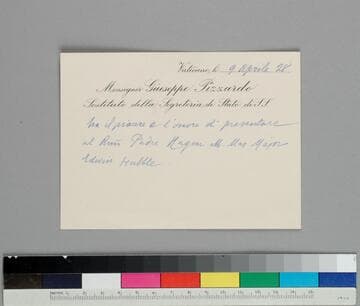 Vaticano, le 9 Aprile 28
Monsignor Giuseppe Pizzardo
Sostituto della Segreteria di Stato di S.S.
ha il piacere e l'onore di presentare
al Rmo Padre Hagen il Major
Edwin Hubble